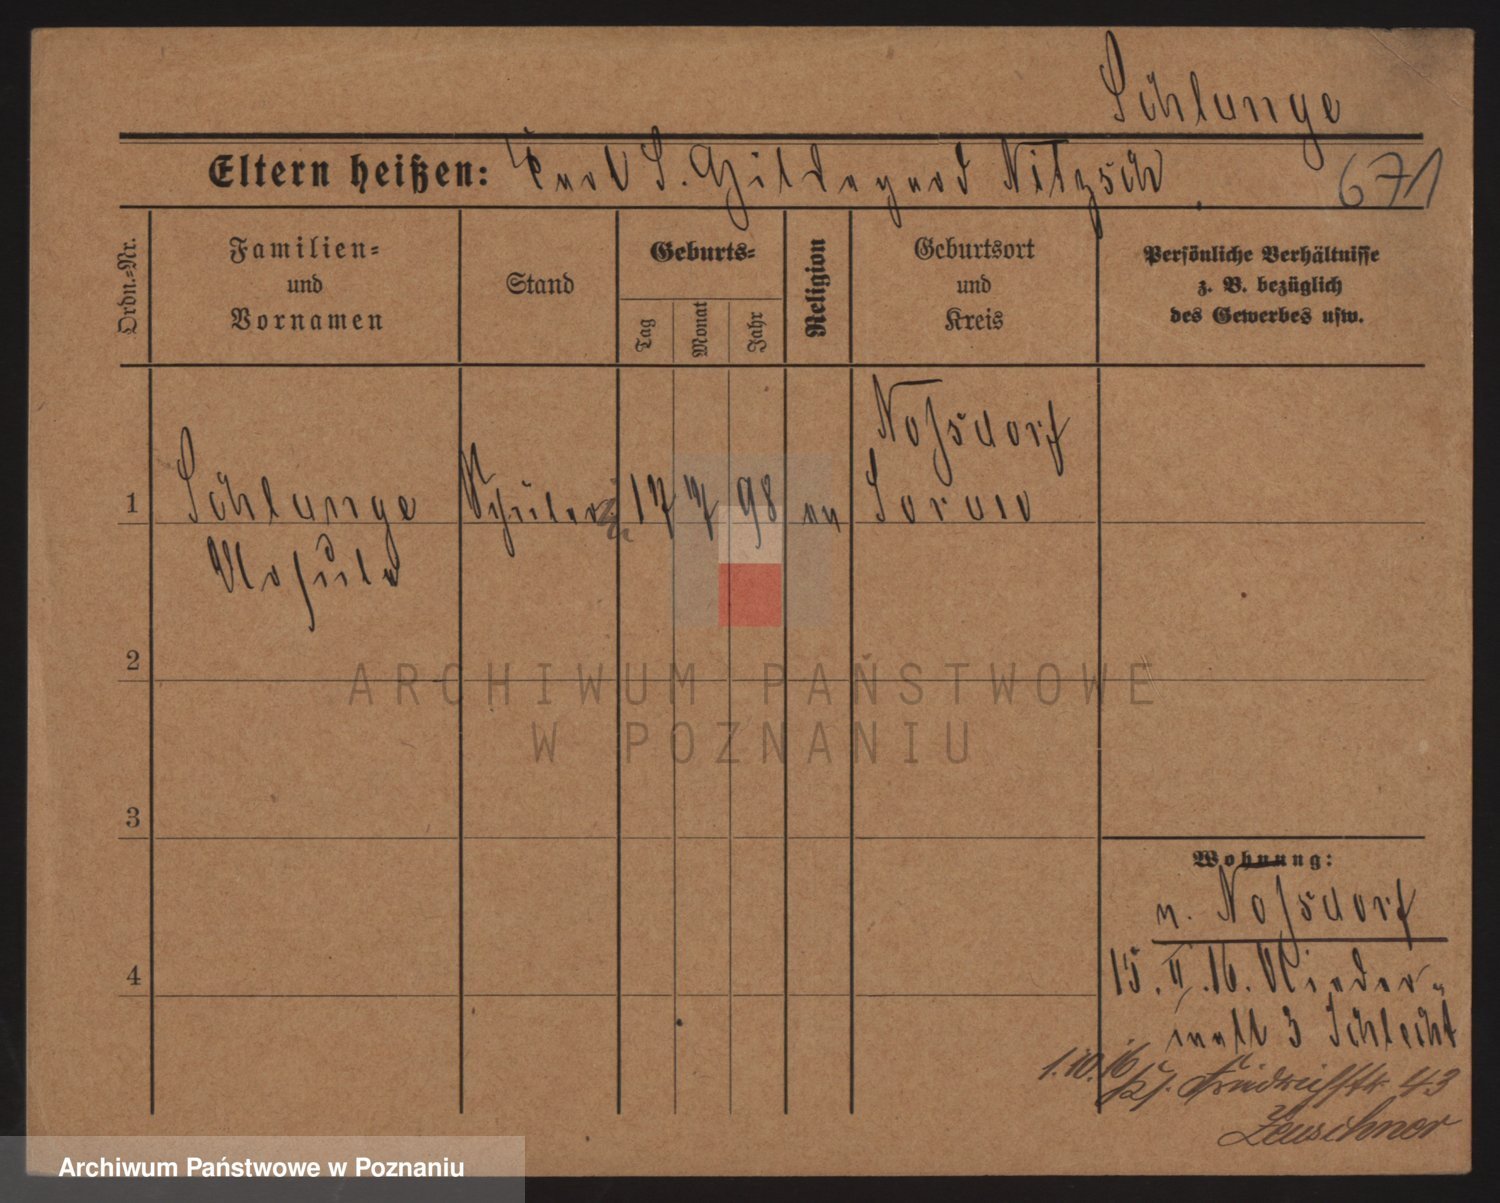 Schlunge
Eltern heißen: Karl S. Hildegard Nitzsch
671
Ordn.-Nr.
Familien-
und
Vornamen
Stand
Geburts-
Tag
Monat
Jahr
Religion
Geburtsort
und
Kreis
Persönliche Verhältnisse
z. B. bezüglich
des Gewerbes usw.
Nossdorf
1 Schlunge Schülerin 17 7 98 ev Sorau
Ursula
2
3
4
Wohnung:
n. Nossdorf
15. II. 16. Nieder-
wall 3 Schlecht
1.10.16 Ks. Friedrichstr. 43
Leuschner
ARCHIWUM PAŃSTWOWE
W POZNANIU
Archiwum Państwowe w Poznaniu